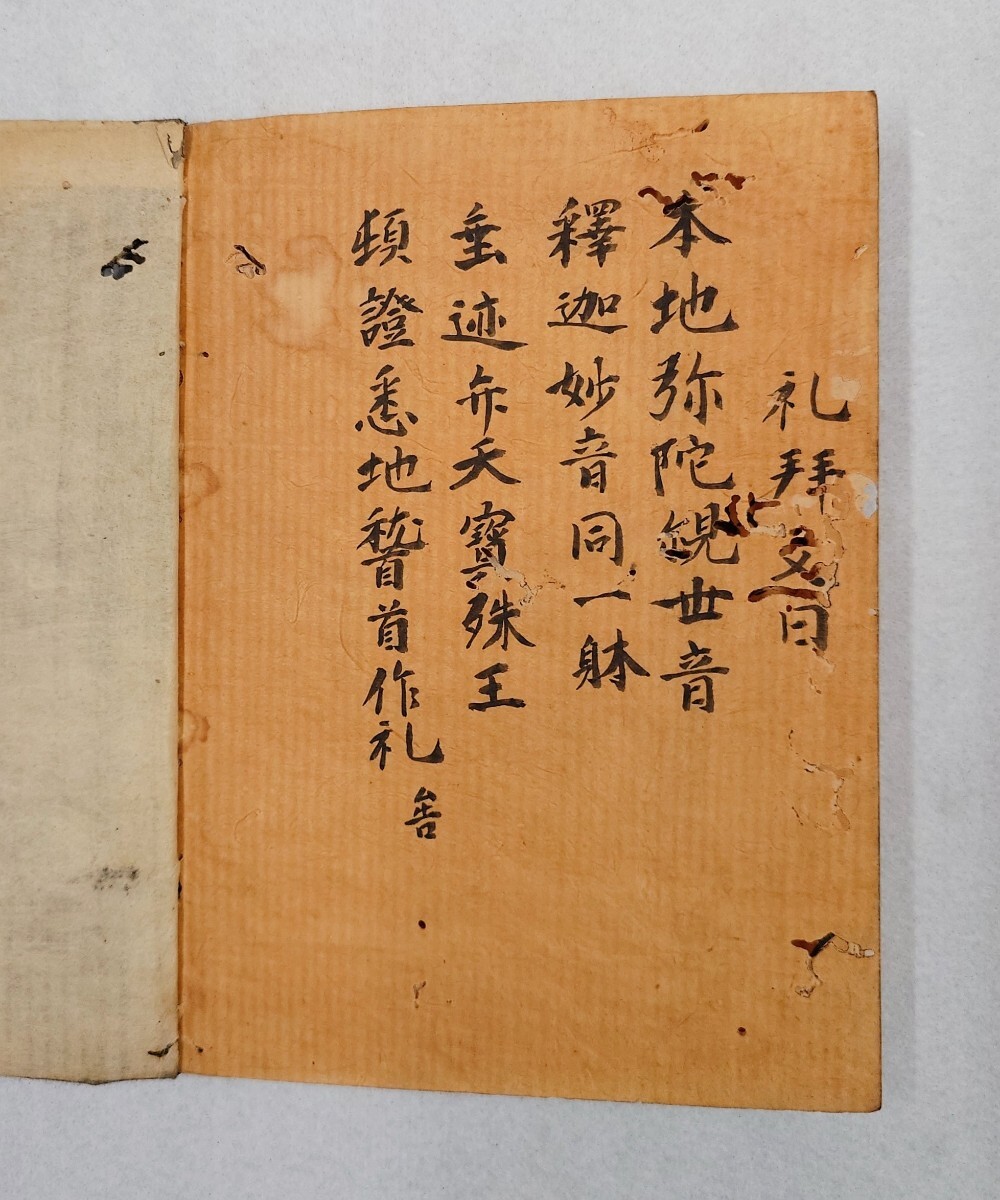 礼拜文曰
本地弥陀観世音
釋迦妙音同一躰
垂迹弁天寳殊王
頓證悉地稽首作礼